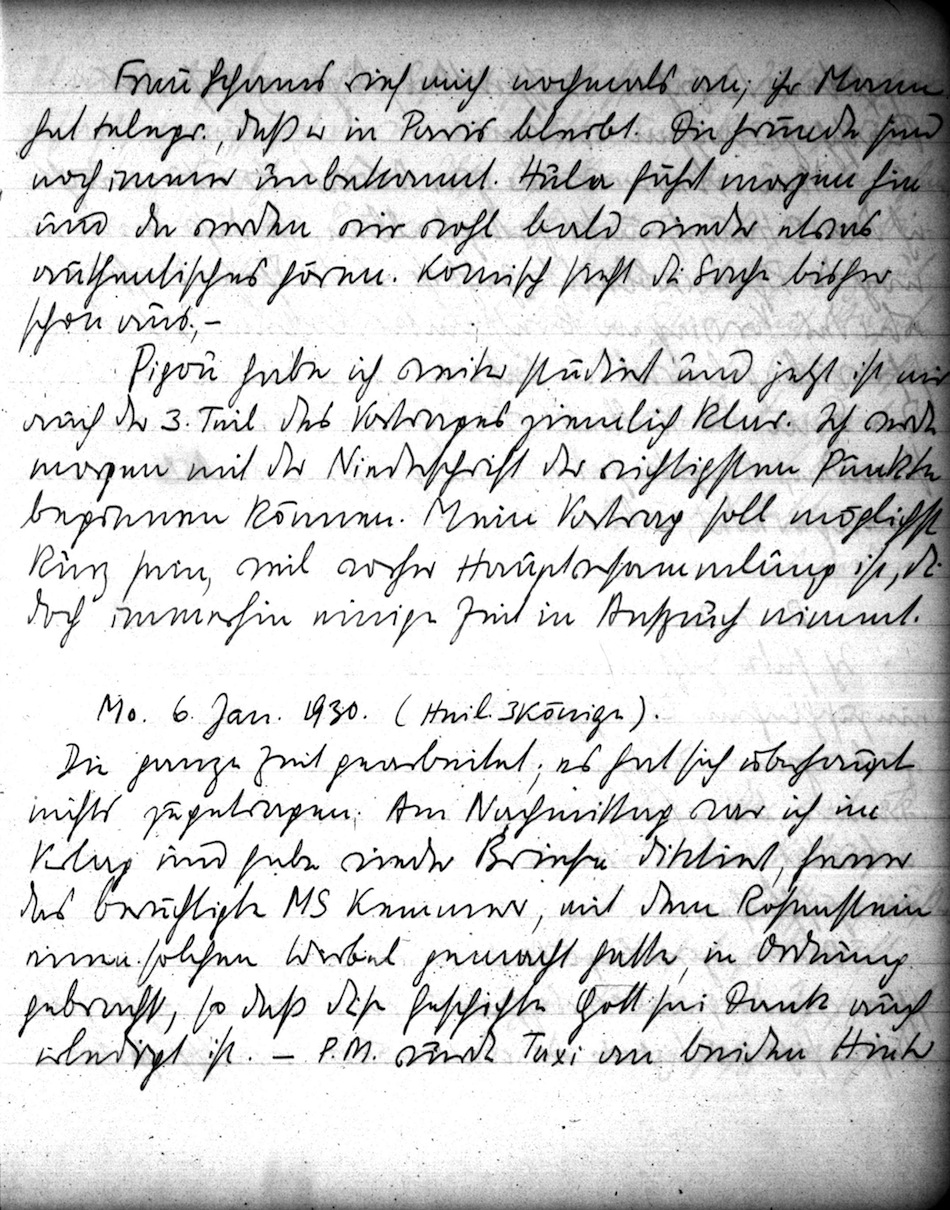 Frau Schams rief mich nochmals an; ihr Mann
hat telegr., daß er in Paris bleibt. Die Gründe sind
noch immer unbekannt. Hula fährt morgen hin
und da werden wir wohl bald wieder etwas
authentisches hören. Komisch sieht die Sache bisher
schon aus. –
Pigou habe ich weiter studiert und jetzt ist mir
auch der 3. Teil des Vortrages ziemlich klar. Ich werde
morgen mit der Niederschrift der wichtigsten Punkte
beginnen können. Mein Vortrag soll möglichst
kurz sein, weil vorher Hauptversammlung ist, die
doch immerhin einige Zeit in Anspruch nimmt.
Mo. 6. Jan. 1930. (Heil. 3 Könige).
Die ganze Zeit gearbeitet; es hat sich überhaupt
nichts zugetragen. Am Nachmittag war ich im
Verlag und habe wieder Briefe diktiert, ferner
das berüchtigte MS Kemmer, mit dem Rosenstein
einen solchen Wirbel gemacht hatte, in Ordnung
gebracht, so daß diese Geschichte Gott sei Dank auch
erledigt ist. – P.M. wurde Taxi an beiden Hinter